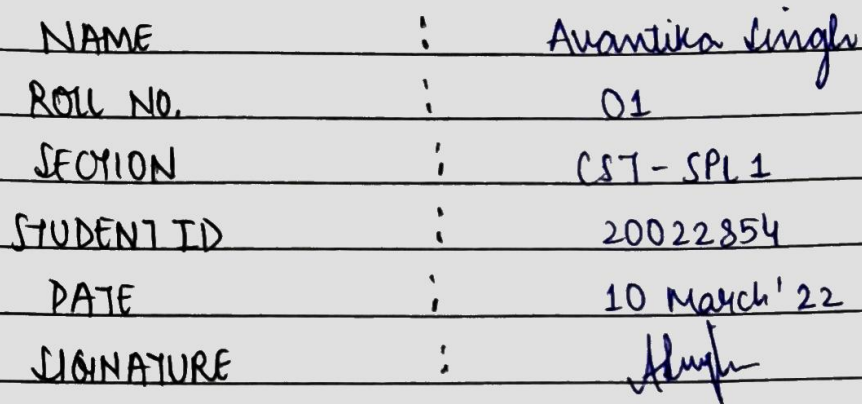 NAME : Avantika Singh
ROLL NO. : 01
SECTION : CST - SPL 1
STUDENT ID : 20022854
DATE : 10 March' 22
SIGNATURE : ASingh